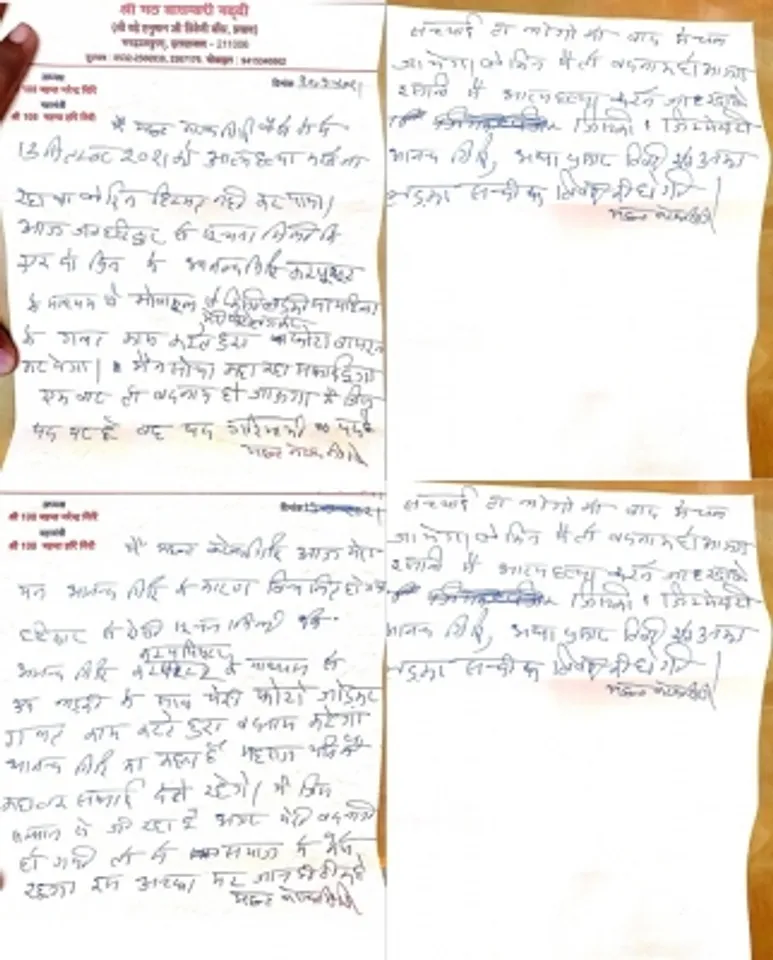 श्री मठ बाघम्बरी गद्दी
(श्री बड़े हनुमान जी त्रिवेणी बाँध, प्रयाग)
इलाहाबाद - 211006
अध्यक्ष
श्री 108 महन्त नरेन्द्र गिरि
महामंत्री
श्री 108 महन्त हरि गिरि
दिनांक
मैं महन्त नरेन्द्र गिरि वैसे तो मैं
13 सितम्बर 2021 को आत्महत्या करने जा
रहा था लेकिन हिम्मत नहीं कर पाया।
आज जब हरिद्वार से सूचना मिली कि
एक दो दिन में आनन्द गिरि कम्प्यूटर
के माध्यम से मोबाइल से किसी लड़की या महिला
के गलत काम करते हुए फोटो वायरल
कर देगा। मैंने सोचा कहाँ तक सफाई दूंगा
एक बार तो बदनाम हो जाऊंगा मैं जिस
पद पर हूँ वह पद गरिमामयी पद है
महन्त नरेन्द्र गिरि
सच्चाई तो लोगों को बाद में चल
जायेगा लेकिन मैं तो बदनाम हो जाऊंगा
इसलिये मैं आत्महत्या करने जा रहा हूँ
जिसकी जिम्मेदारी
आनन्द गिरि, आद्या प्रसाद तिवारी एवं उनका
लड़का सन्दीप तिवारी की होगी।
महन्त नरेन्द्र गिरि
अध्यक्ष
श्री 108 महन्त नरेन्द्र गिरि
महामंत्री
श्री 108 महन्त हरि गिरि
दिनांक
मैं महन्त नरेन्द्र गिरि आज मेरा
मन आनन्द गिरि के कारण विचलित हो गया
हरिद्वार से ऐसी सूचना मिली कि
कम्प्यूटर
आनन्द गिरि के माध्यम से
एक लड़की के साथ मेरी फोटो जोड़कर
गलत काम करते हुए बदनाम करेगा
आनन्द गिरि का कहना है महाराज यानि मैं
कहाँ तक सफाई देते रहेंगे। मैं जिस
सम्मान से जी रहा हूँ अगर मेरी बदनामी
हो गयी तो मैं समाज में कैसे
रहूंगा इससे अच्छा मर जाना ठीक है
महन्त नरेन्द्र गिरि
सच्चाई तो लोगों को बाद में चल
जायेगा लेकिन मैं तो बदनाम हो जाऊंगा
इसलिये मैं आत्महत्या करने जा रहा हूँ
जिसकी जिम्मेदारी
आनन्द गिरि, आद्या प्रसाद तिवारी एवं उनका
लड़का सन्दीप तिवारी की होगी।
महन्त नरेन्द्र गिरि